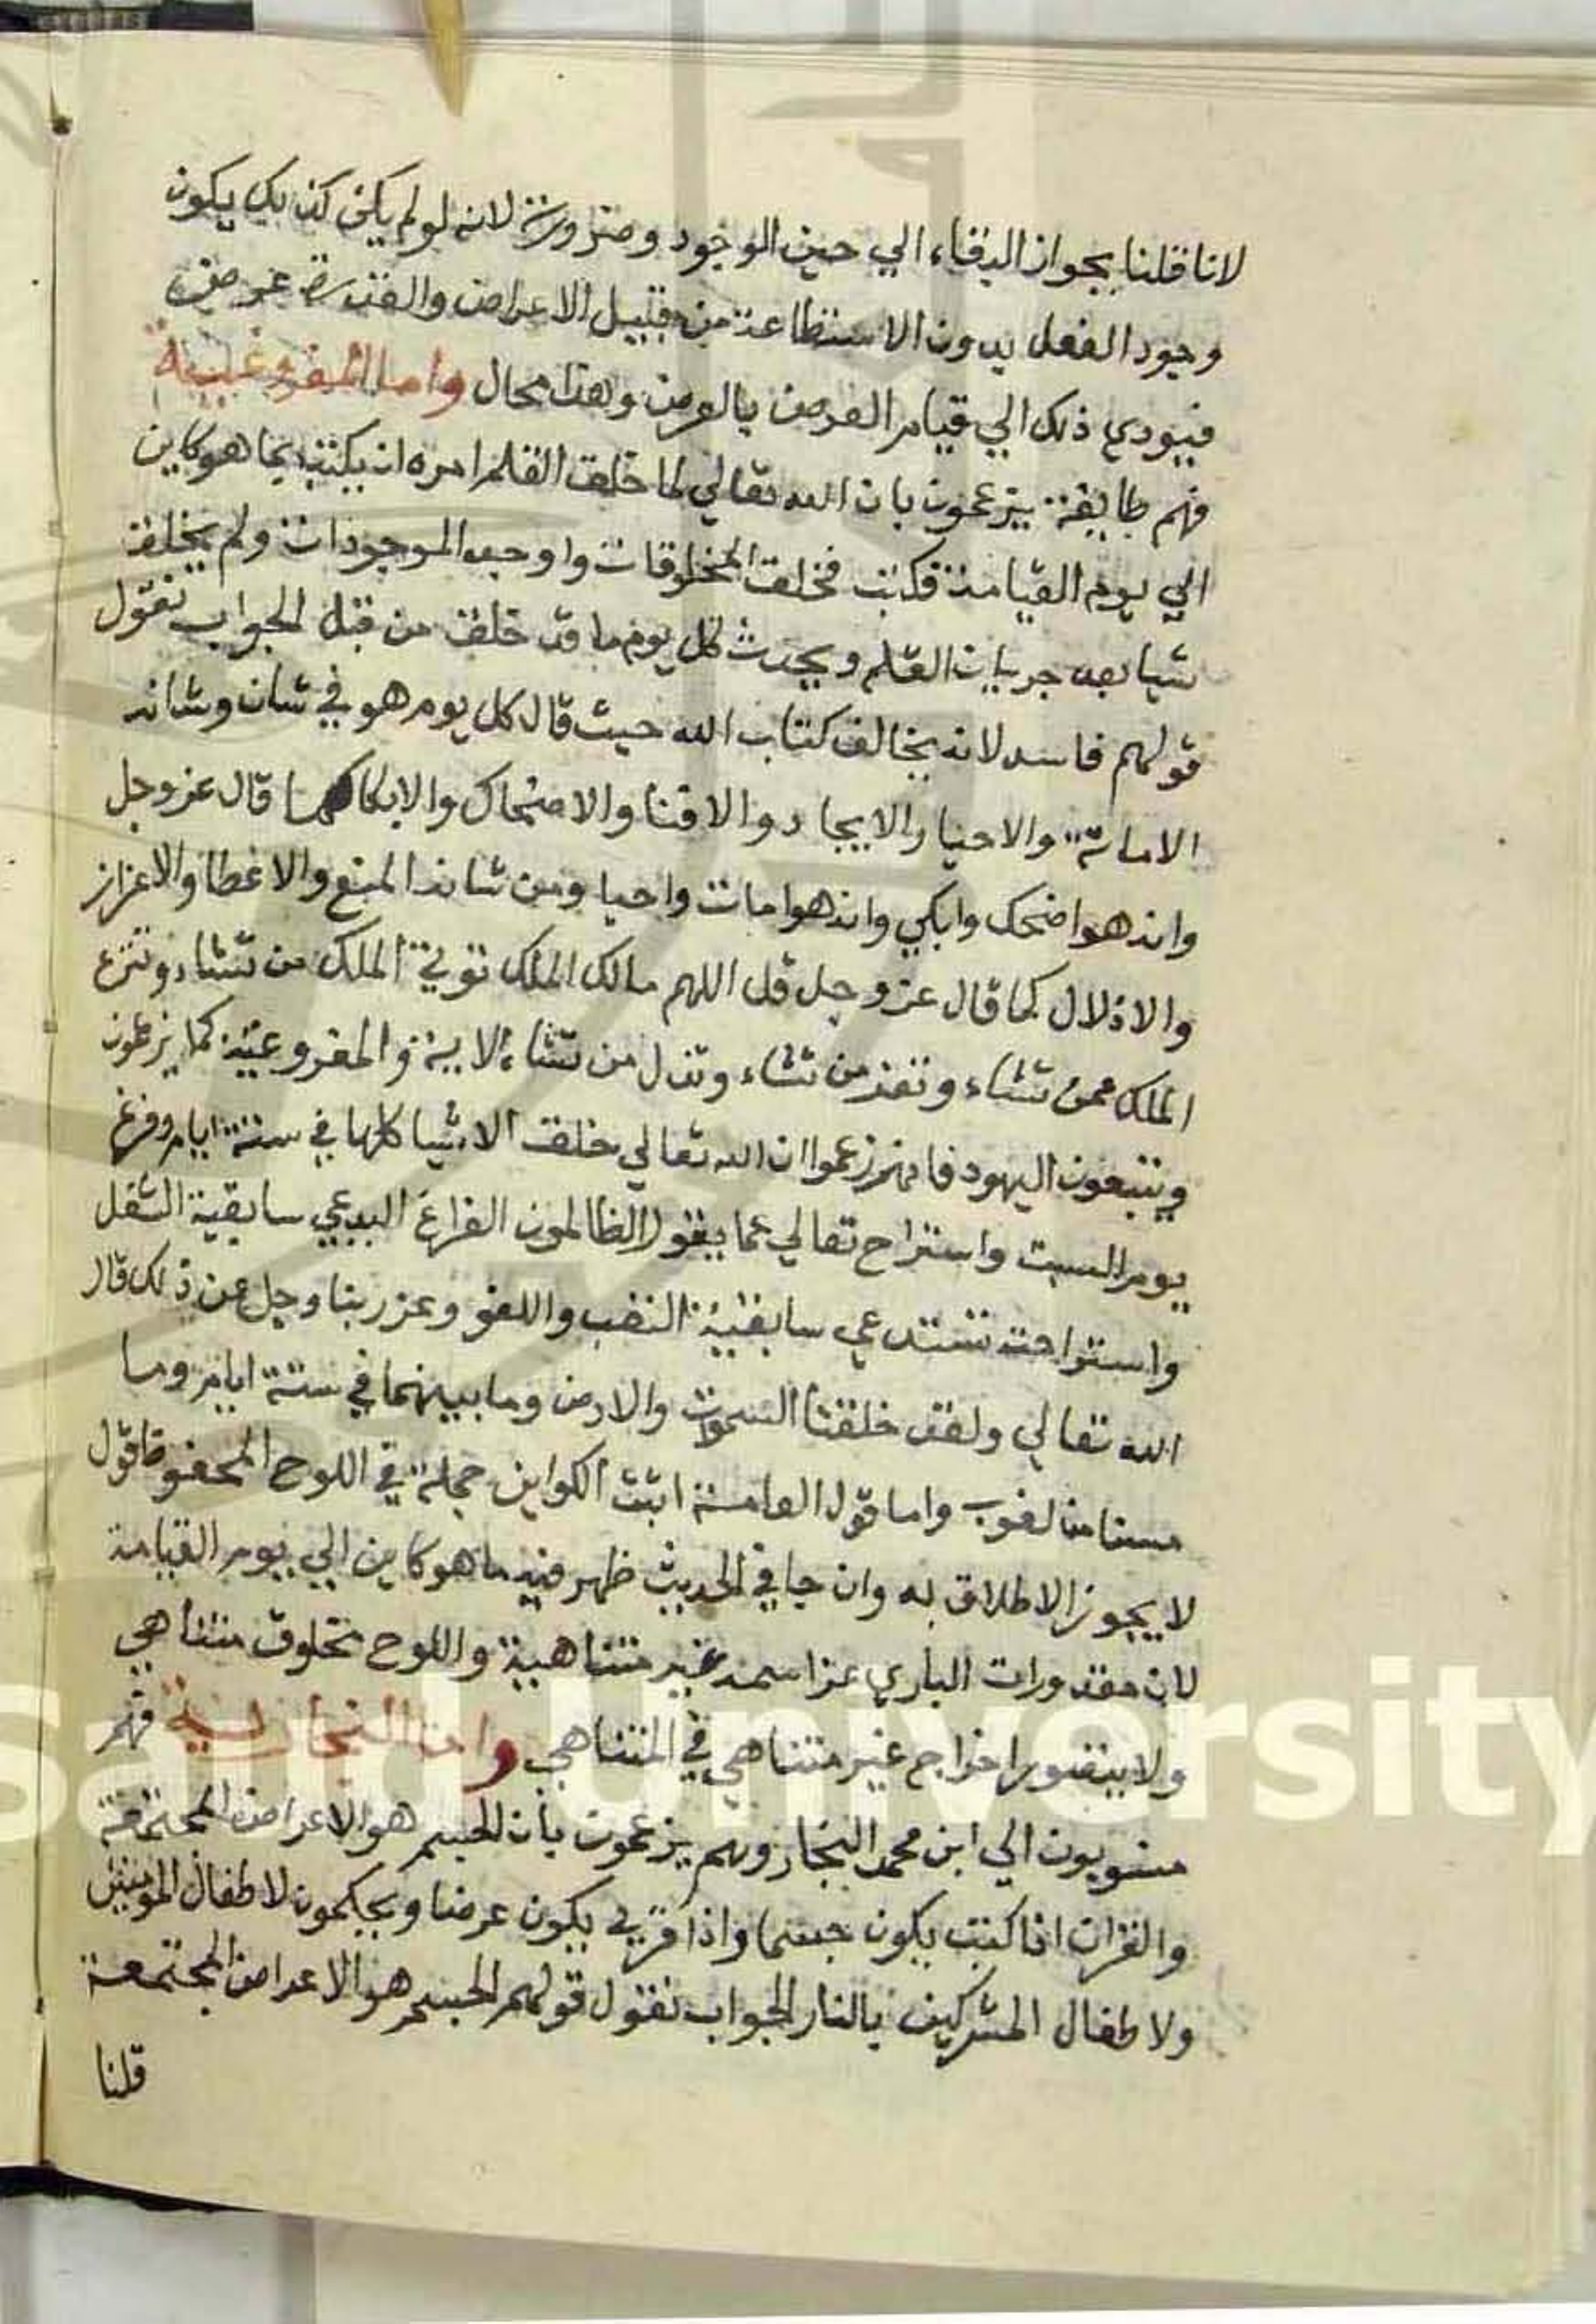 لانا قلنا بجواز البقاء الي حين الوجود وضرورة لانه لو لم يكن كذلك يكون
وجود الفعل بدون الاستطاعة من قبيل الاعراض والقدرة عرض
فيودي ذلك الي قيام العرض بالعرض وهذا محال واما المفروغية
فهم طايفة يزعمون بان الله تعالي لما خلق القلم امره ان يكتب بما هو كاين
الي يوم القيامة فكتب فخلق المخلوقات واوجد الموجودات ولم يخلق
شيا بعد جريان القلم ويحدث كل يوم ما قد خلق من قبل الجواب نقول
قولهم فاسد لانه يخالف كتاب الله حيث قال كل يوم هو في شان وشانه
الاماتة والاحيا والايجاد والافنا والاضحاك والابكا كما قال عز وجل
وانه هو اضحك وابكي وانه هو امات واحيا ومن شانه المنع والاعطا والاعزاز
والاذلال كما قال عز وجل قل اللهم مالك الملك توتي الملك من تشاء وتنزع
الملك ممن تشاء وتعز من تشاء وتذل من تشاء الاية والمفروعية كما يزعمون
ويتبعون اليهود فانهم زعموا ان الله تعالي خلق الاشيا كلها في ستة ايام وفرغ
يوم السبت واستراح تعالي عما يقول الظالمون الفراغ البدعي سابقية الشغل
واستراحته تستدعي سابقية النصب واللغو وعز ربنا وجل عن ذلك قال
الله تعالي ولقد خلقنا السموات والارض وما بينهما في ستة ايام وما
مسنا من لغوب واما قول العامة اثبت الكواين جملة في اللوح المحفوظ قول
لا يجوز الاطلاق به وان جا في الحديث ظهر فيه ما هو كاين الي يوم القيامة
لان مقدورات الباري عز اسمه غير متناهية واللوح مخلوق متناهي
ولا يتصور اخراج غير متناهي في المتناهي واما النجارية فهم
منسوبون الي ابن محمد النجار وهم يزعمون بان الجسم هو الاعراض المجتمعة
والقران اذا كتب يكون جسما واذا قري يكون عرضا ويحكمون لاطفال المومنين
ولاطفال المشركين بالنار الجواب نقول قولهم الجسم هو الاعراض المجتمعة
قلنا